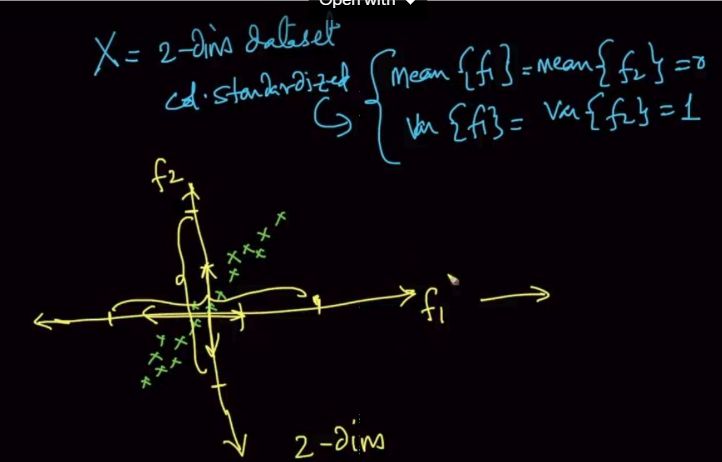 Open with
X = 2-dims dataset
col. standardized { Mean {f1} = mean {f2} = 0
Var {f1} = Var {f2} = 1
f2
f1
2-dims